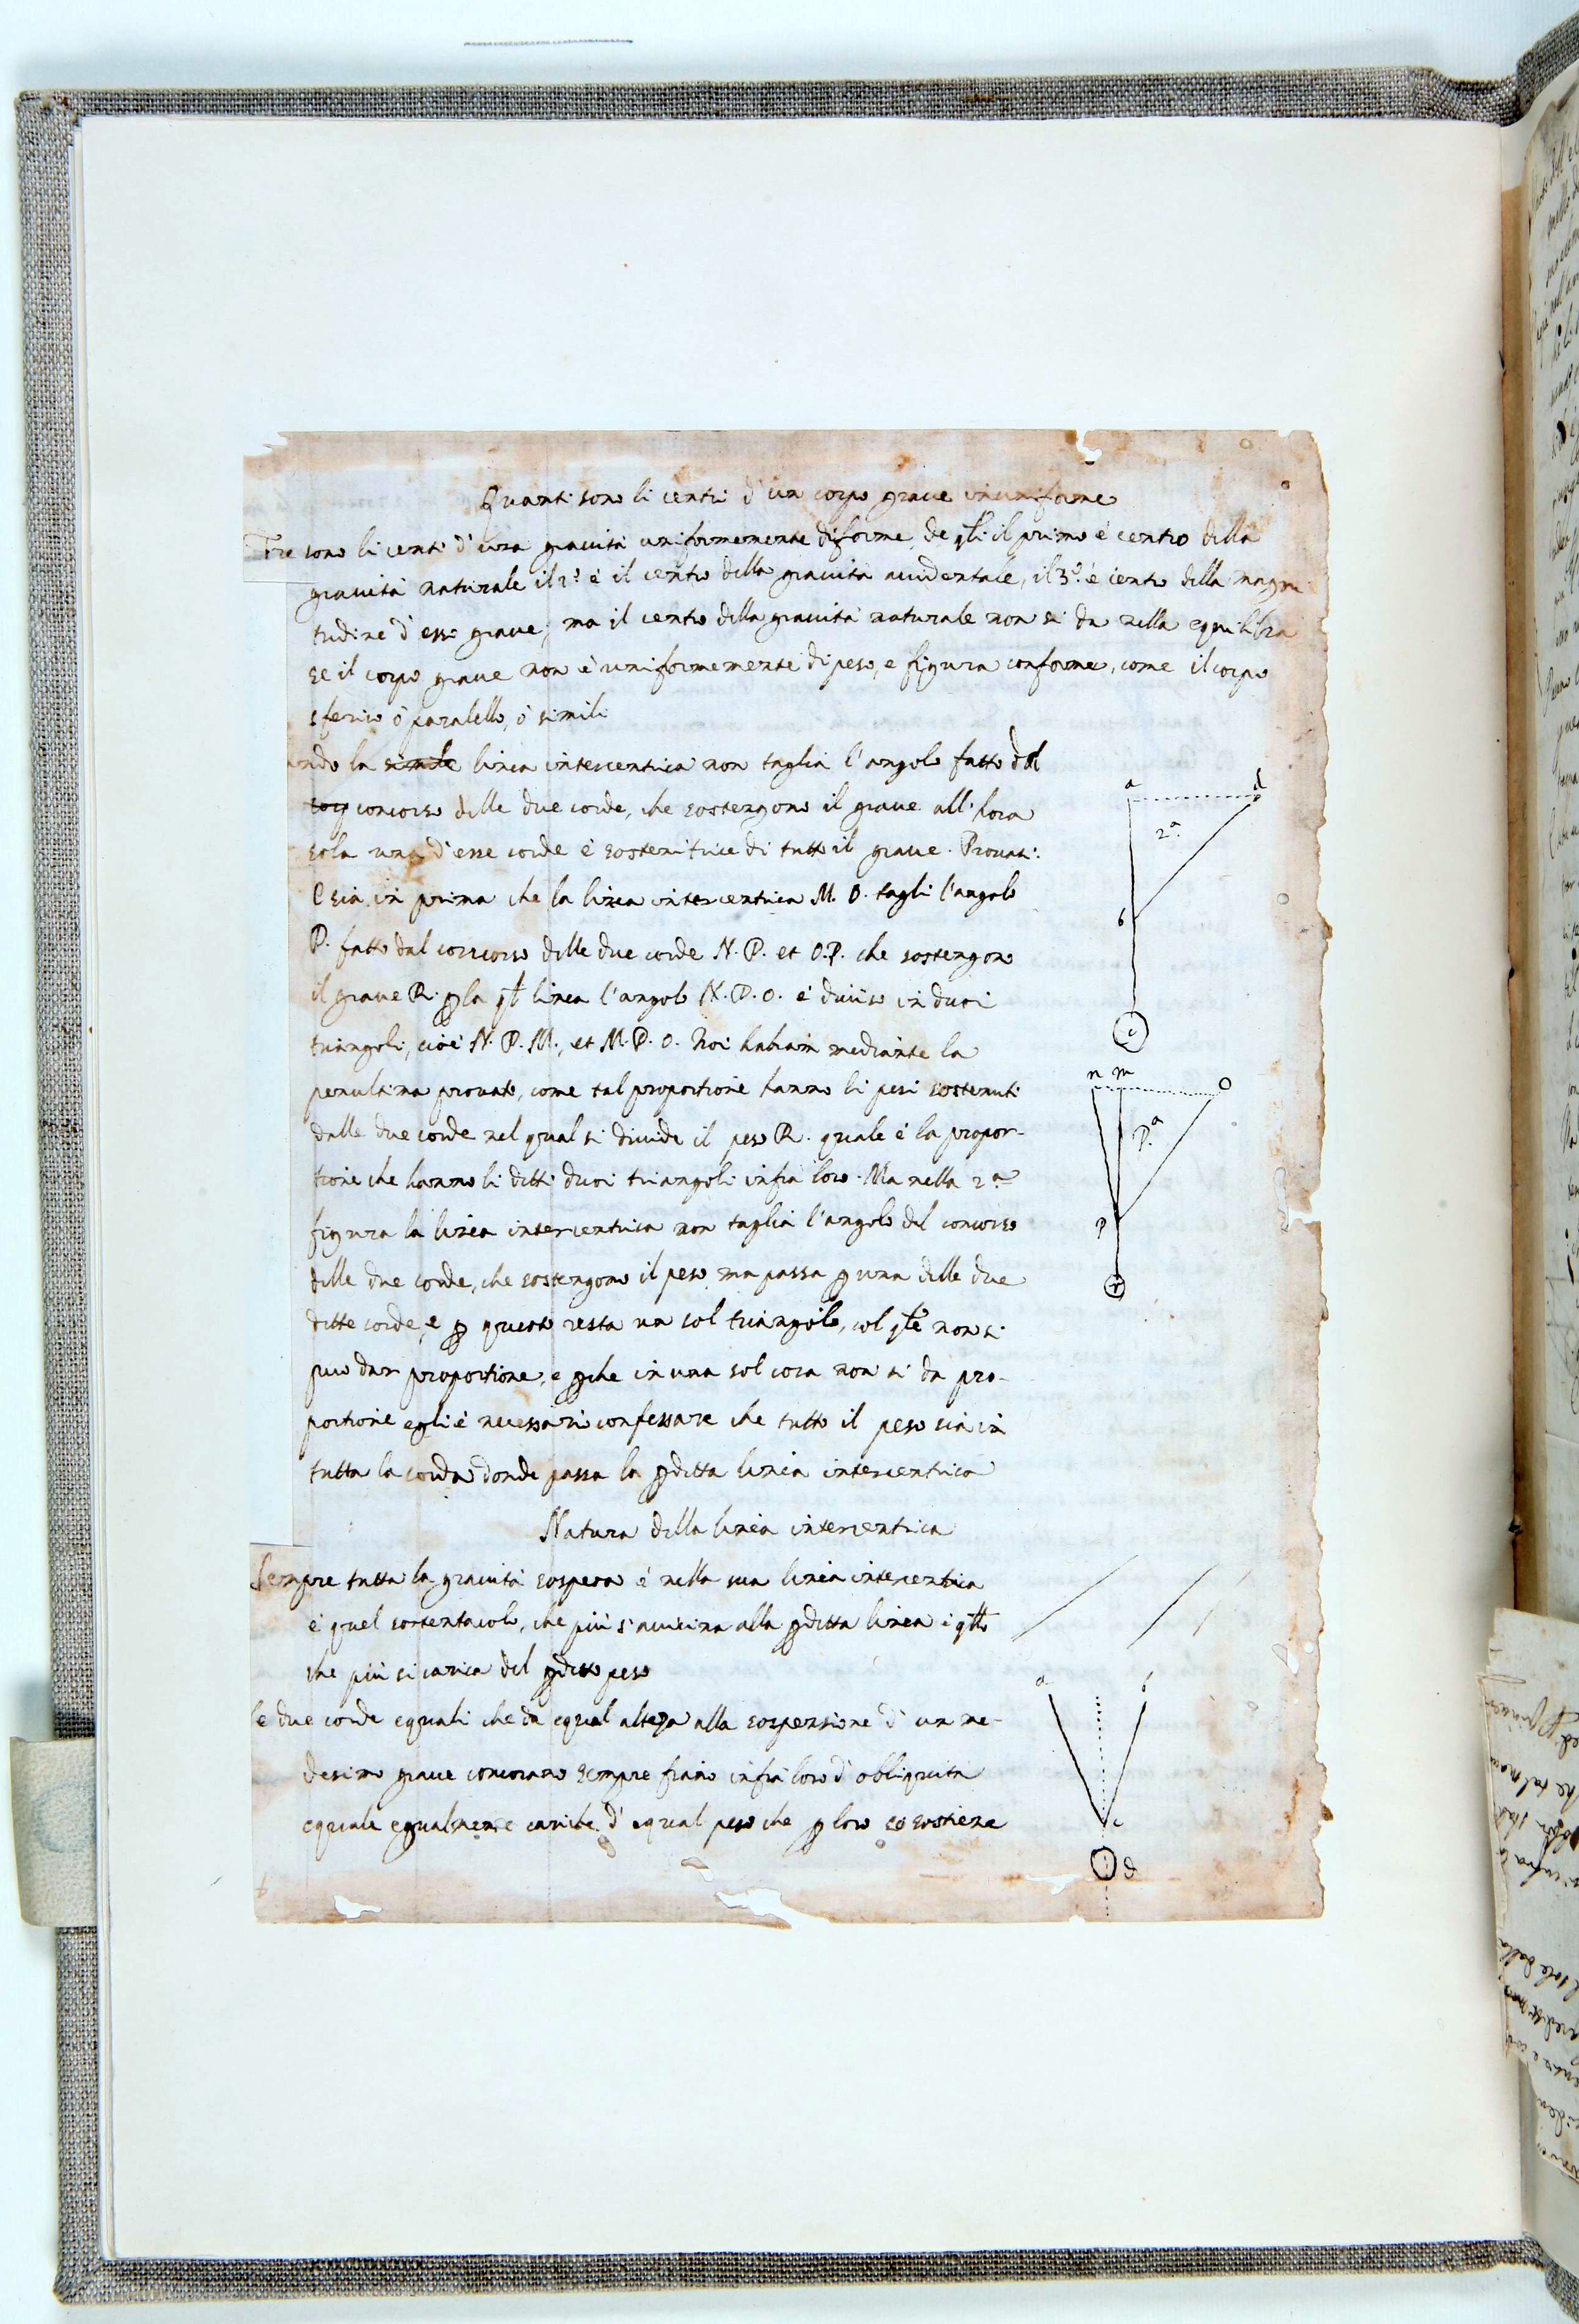 Quanti sono li centri d'un corpo grave inuniforme
Tre sono li centri d'una gravità uniformemente difforme, de qli il primo è centro della
gravità naturale il 2º è il centro della gravità accidentale, il 3º è centro della magni
tudine d'esso grave, ma il centro della gravità naturale non si da nella equilibra
se il corpo grave non è uniformemente di peso, e figura conforme, come il corpo
sferico ò paralello, ò simili
ando la simile linea intercentrica non taglia l'angolo fatto dal
corp concorso delle due corde, che sostengono il grave all'hora
sola una d'esse corde è sostenitrice di tutto il grave. Provasi:
E sia in prima che la linea intercentrica M. O. tagli l'angolo
P. fatto dal concorso delle due corde N. P. et O.P. che sostengono
il grave R. p la qł linea l'angolo N. P. O. è diviso in duoi
triangoli, cioè N. P. M., et M. P. O. Noi habiam mediante la
penultima provato, come tal proportione hanno li pesi sostenuti
dalle due corde nel qual si divide il peso R. quale è la propor-
tione che hanno li ditti duoi triangoli infra loro. Ma nella 2ª
figura la linea intercentrica non taglia l'angolo del concorso
delle due corde, che sostengono il peso ma passa p una delle due
ditte corde, e p questo resta un sol triangolo, col qle non si
puo dar proportione, e pche in una sol cosa non si da pro-
portione egli è necessario confessare che tutto il peso sia in
tutta la corda donde passa la pditta linea intercentrica
Natura della linea intercentrica
Sempre tutta la gravità sospesa è nella sua linea intercentrica
e quel sostentacolo, che più s'avvicina alla pditta linea è qllo
che più si carica del pditto peso
le due corde equali che da equal alteza alla sospensione d'un me-
desimo grave concorano sempre fiano infra loro d'obliquita
equale egualmente cariche d'equal peso che p loro si sostiene
a d
2ª
b
c
n m o
Pª
p
r
a b
c
d